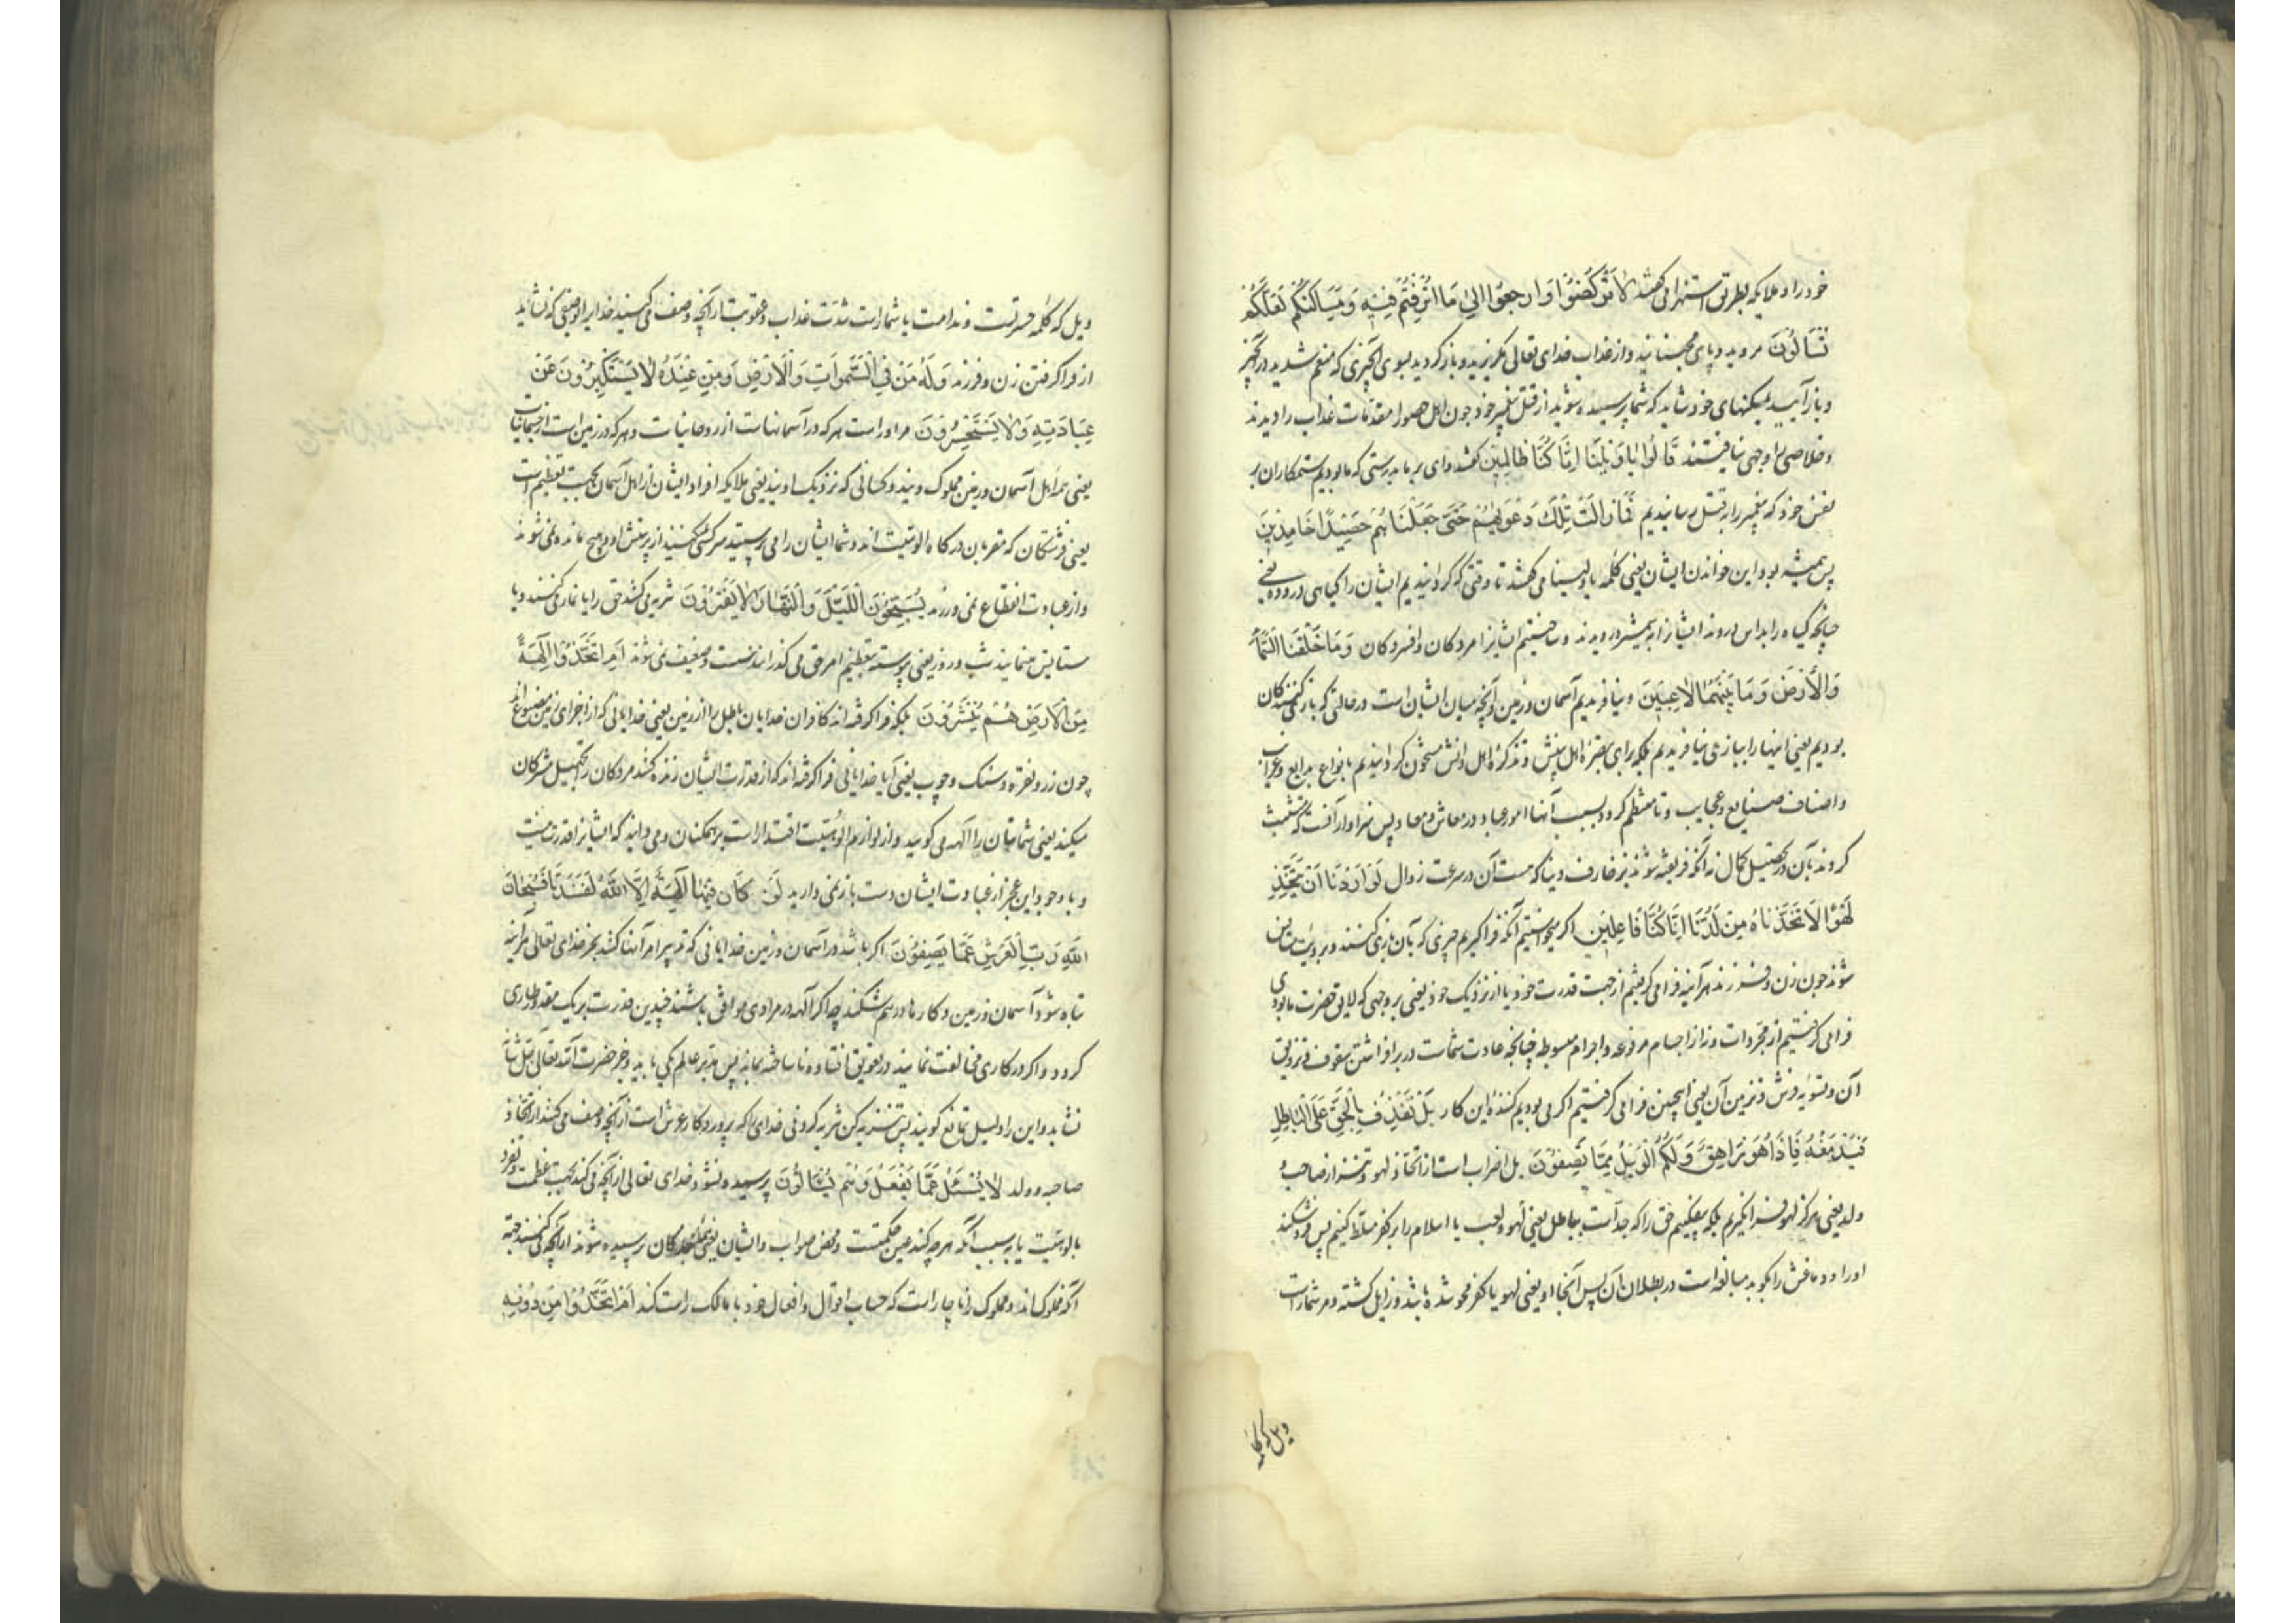 خود را و ملایکه بطریق استهزا می گفتند لَا تَرْكُضُوا وَارْجِعُوا إِلَىٰ مَا أُتْرِفْتُمْ فِيهِ وَمَسَاكِنِكُمْ لَعَلَّكُمْ
تُسْأَلُونَ مروید و پای مجنبانید و از عذاب خدای تعالی مگریزید و بازگردید بسوی آنچیزی که منعم شدید در آنچیز
و بازآیید بمسکنهای خود شاید که شما پرسیده شوید از قتل پیغمبر خود چون اهل حصورا مقدمات عذاب را دیدند
و خلاصی را وجهی نیافتند قَالُوا يَا وَيْلَنَا إِنَّا كُنَّا ظَالِمِينَ گفتند وای بر ما بدرستی که ما بودیم ستمکاران بر
نفس خود که پیغمبر را بقتل رسانیدیم فَمَا زَالَتْ تِلْكَ دَعْوَاهُمْ حَتَّىٰ جَعَلْنَاهُمْ حَصِيدًا خَامِدِينَ
پس همیشه بود این خواندن ایشان یعنی کلمه یا ویلنا می گفتند تا وقتی که گردانیدیم ایشان را گیاهی دروده یعنی
چنانچه گیاه را بداس دروند ایشانرا بشمشیر درویدند و ساختیم ایشانرا مردکان و افسردکان وَمَا خَلَقْنَا السَّمَاءَ
وَالْأَرْضَ وَمَا بَيْنَهُمَا لَاعِبِينَ و نیافریدیم آسمان و زمین و آنچه میان ایشان است در حالتی که بازی کنندکان
بودیم یعنی اینها را ببازی نیافریدیم بلکه برای تبصره اهل بینش و تذکره اهل دانش مشحون گردانیدیم بانواع بدایع و غرایب
و اصناف صنایع و عجایب و تا منتظم گردد بسبب آنها امور عباد در معاش و معاد پس سزاوار آنست که تشبث
کردند بآن در تحصیل کمال نه آنکه فریفته شوند بزخارف دنیا که هست آن در سرعت زوال لَوْ أَرَدْنَا أَنْ نَتَّخِذَ
لَهْوًا لَاتَّخَذْنَاهُ مِنْ لَدُنَّا إِنْ كُنَّا فَاعِلِينَ اگر میخواستیم آنکه فراگیریم چیزی که بآن بازی کنند و برویت این
شوند چون زن و فرزند هر آینه فرامی گرفتیم از جهت قدرت خود یا از نزدیک خود یعنی بر وجهی که لایق حضرت ما بودی
فرامی گرفتیم از مجردات و نه از اجسام مرفوعه و اجرام مبسوطه چنانچه عادت شماست در برافراشتن سقوف و تزویق
آن و تسویه فرش و تزیین آن یعنی اینچنین فرامی گرفتیم اگر می بودیم کننده این کار بَلْ نَقْذِفُ بِالْحَقِّ عَلَى الْبَاطِلِ
فَيَدْمَغُهُ فَإِذَا هُوَ زَاهِقٌ وَلَكُمُ الْوَيْلُ مِمَّا تَصِفُونَ بل اضراب است از اتخاذ لهو و تنزه از صاحبه و
ولد یعنی هرگز لهو فرانگیریم بلکه بیفکنیم حق را که جد است بباطل یعنی لهو و لعب یا اسلام را بر کفر مسلط کنیم پس فروشکند
او را و دماغش را بکوبد مبالغه است در بطلان آن پس آنجا او یعنی لهو یا کفر محو شده باشد و زایل گشته و مر شماراست
ویل که کلمه
ویل که کلمه حسرتست و ندامت یا شماراست شدت عذاب و عقوبت از آنچه وصف می کنید خدایرا بوصفی که نشاید
از فراگرفتن زن و فرزند وَلَهُ مَنْ فِي السَّمَوَاتِ وَالْأَرْضِ وَمَنْ عِنْدَهُ لَا يَسْتَكْبِرُونَ عَنْ
عِبَادَتِهِ وَلَا يَسْتَحْسِرُونَ مر اوراست هر که در آسمانهاست از روحانیات و هر که در زمین است از جسمانیات
یعنی همه اهل آسمان و زمین مملوک ویند و کسانی که نزدیک اویند یعنی ملایکه افراد ایشان از اهل آسمان بجهت تعظیم است
یعنی فرشتکان که مقربان درکاه الوهیت اند و شما ایشان را می پرستید سرکشی نمی کنند از پرستش او و هیچ مانده نمی شوند
و از عبادت انقطاع نمی ورزند يُسَبِّحُونَ اللَّيْلَ وَالنَّهَارَ لَا يَفْتُرُونَ تنزیه می کنند حق را یا نماز می کنند و یا
ستایش مینمایند شب و روز یعنی پیوسته بتعظیم امر حق می گذرانند سست و ضعیف نمی شوند أَمِ اتَّخَذُوا آلِهَةً
مِنَ الْأَرْضِ هُمْ يُنْشِرُونَ بلکه فراگرفته اند کافران خدایان باطل را از زمین یعنی خدایانی که از اجزای زمین مصنوع اند
چون زر و نقره و سنگ و چوب یعنی آیا خدایانی فراگرفته اند که از قدرت ایشان زنده کنند مردکان را تجهیل مشرکان
میکند یعنی شما بتان را آلهه می گویید و از لوازم الوهیت اقتدار است بر ممکنان و می دانید که ایشانرا قدرت نیست
و با وجود این عجز از عبادت ایشان دست باز نمی دارید لَوْ كَانَ فِيهِمَا آلِهَةٌ إِلَّا اللَّهُ لَفَسَدَتَا فَسُبْحَانَ
اللَّهِ رَبِّ الْعَرْشِ عَمَّا يَصِفُونَ اگر باشد در آسمان و زمین خدایانی که تدبیر امر آنها کنند بجز خدای تعالی هر آینه
تباه شود آسمان و زمین و کارها درهم شکند چه اگر آلهه در مرادی موافق باشند چندین قدرت بر یک مقدور طاری
گردد و اگر در کاری مخالفت نمایند در تعویق افتاده ناساخته بماند پس مدبر عالم یکی باید و جز حضرت آله تعالی و تقدس
نشاید و این را دلیل تمانع گویند پس تنزیه کن تنزیه کردنی خدای را که پروردکار عرش است از آنچه وصف می کنند از اتخاذ
صاحبه و ولد لَا يُسْأَلُ عَمَّا يَفْعَلُ وَهُمْ يُسْأَلُونَ پرسیده نشود خدای تعالی از آنچه می کند بجهت عظمت و تفرد
بالوهیت یا بسبب آنکه هر چه کند عین حکمتست و محض صواب و ایشان یعنی بندکان پرسیده شوند از آنچه می کنند بجهة
آنکه مملوک اند و مملوک را ناچار است که حساب اقوال و افعال خود با مالک راست کند أَمِ اتَّخَذُوا مِنْ دُونِهِ